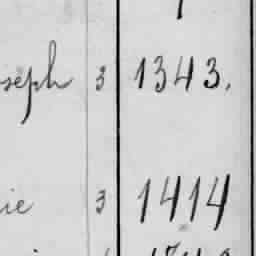 seph 3 1343.
ie 3 1414